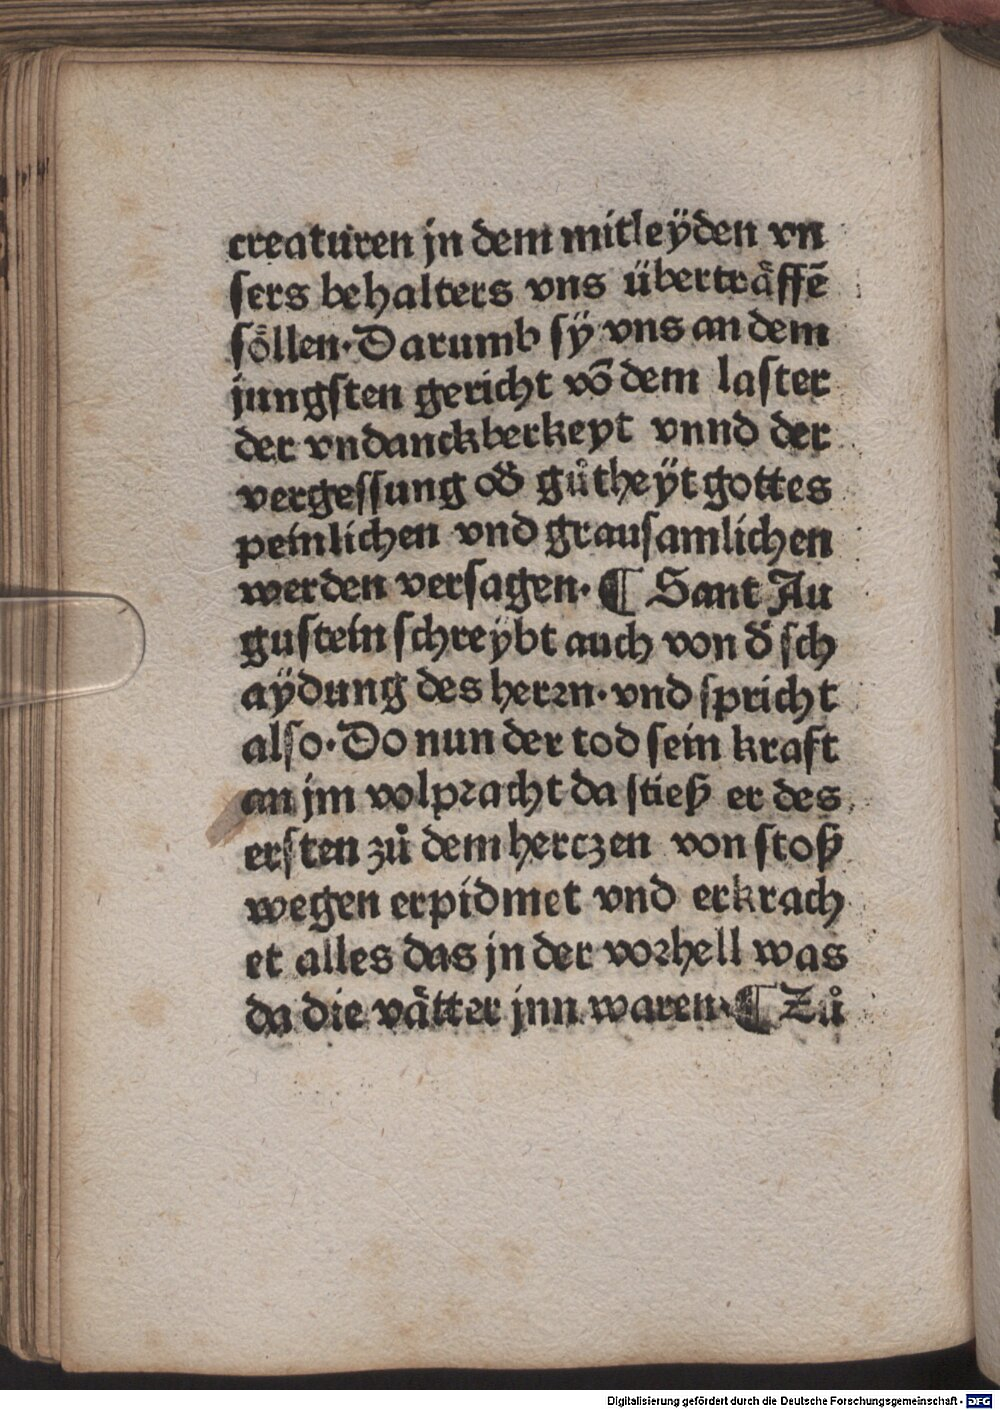 creaturen jn dem mitleÿden vn
sers behalters vns überträffē
söllen·Darumb sÿ vns an dem
jungsten gericht vō dem laster
der vndanckberkeyt vnnd der
vergessung od̄ gůtheÿt gottes
peinlichen vnd grausamlichen
werden versagen·¶ Sant Au
gustein schreÿbt auch von d̄ sch
aÿdung des herꝛn·vnd spricht
also·Do nun der tod sein kraft
an jm volpꝛacht da stieß er des
ersten zů dem herczen von stoß
wegen erpidmet vnd erkrach
et alles das jn der voꝛhell was
da die vätter jnn waren·¶ Zů
Digitalisierung gefördert durch die Deutsche Forschungsgemeinschaft - DFG